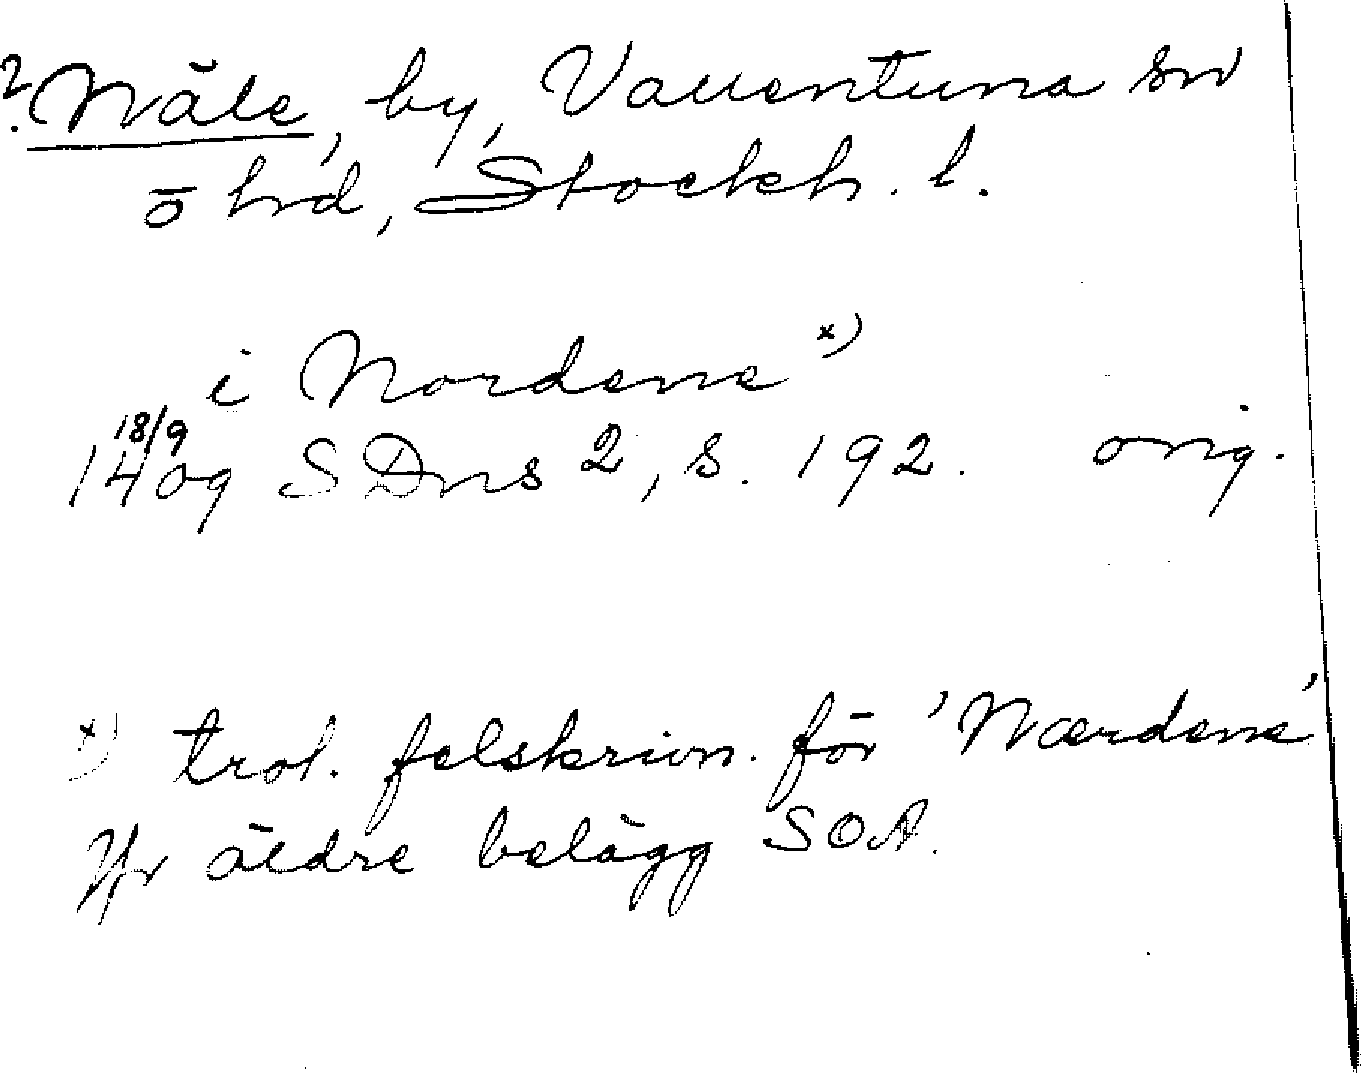 ? Näle, by, Vallentuna sn
o hd, Stockh. l.
i Nordene x)
18/9
1409 SDns 2, s. 192. orig.
x) trol. felskrivn. för 'Nærdene'
Jfr äldre belägg SOA.